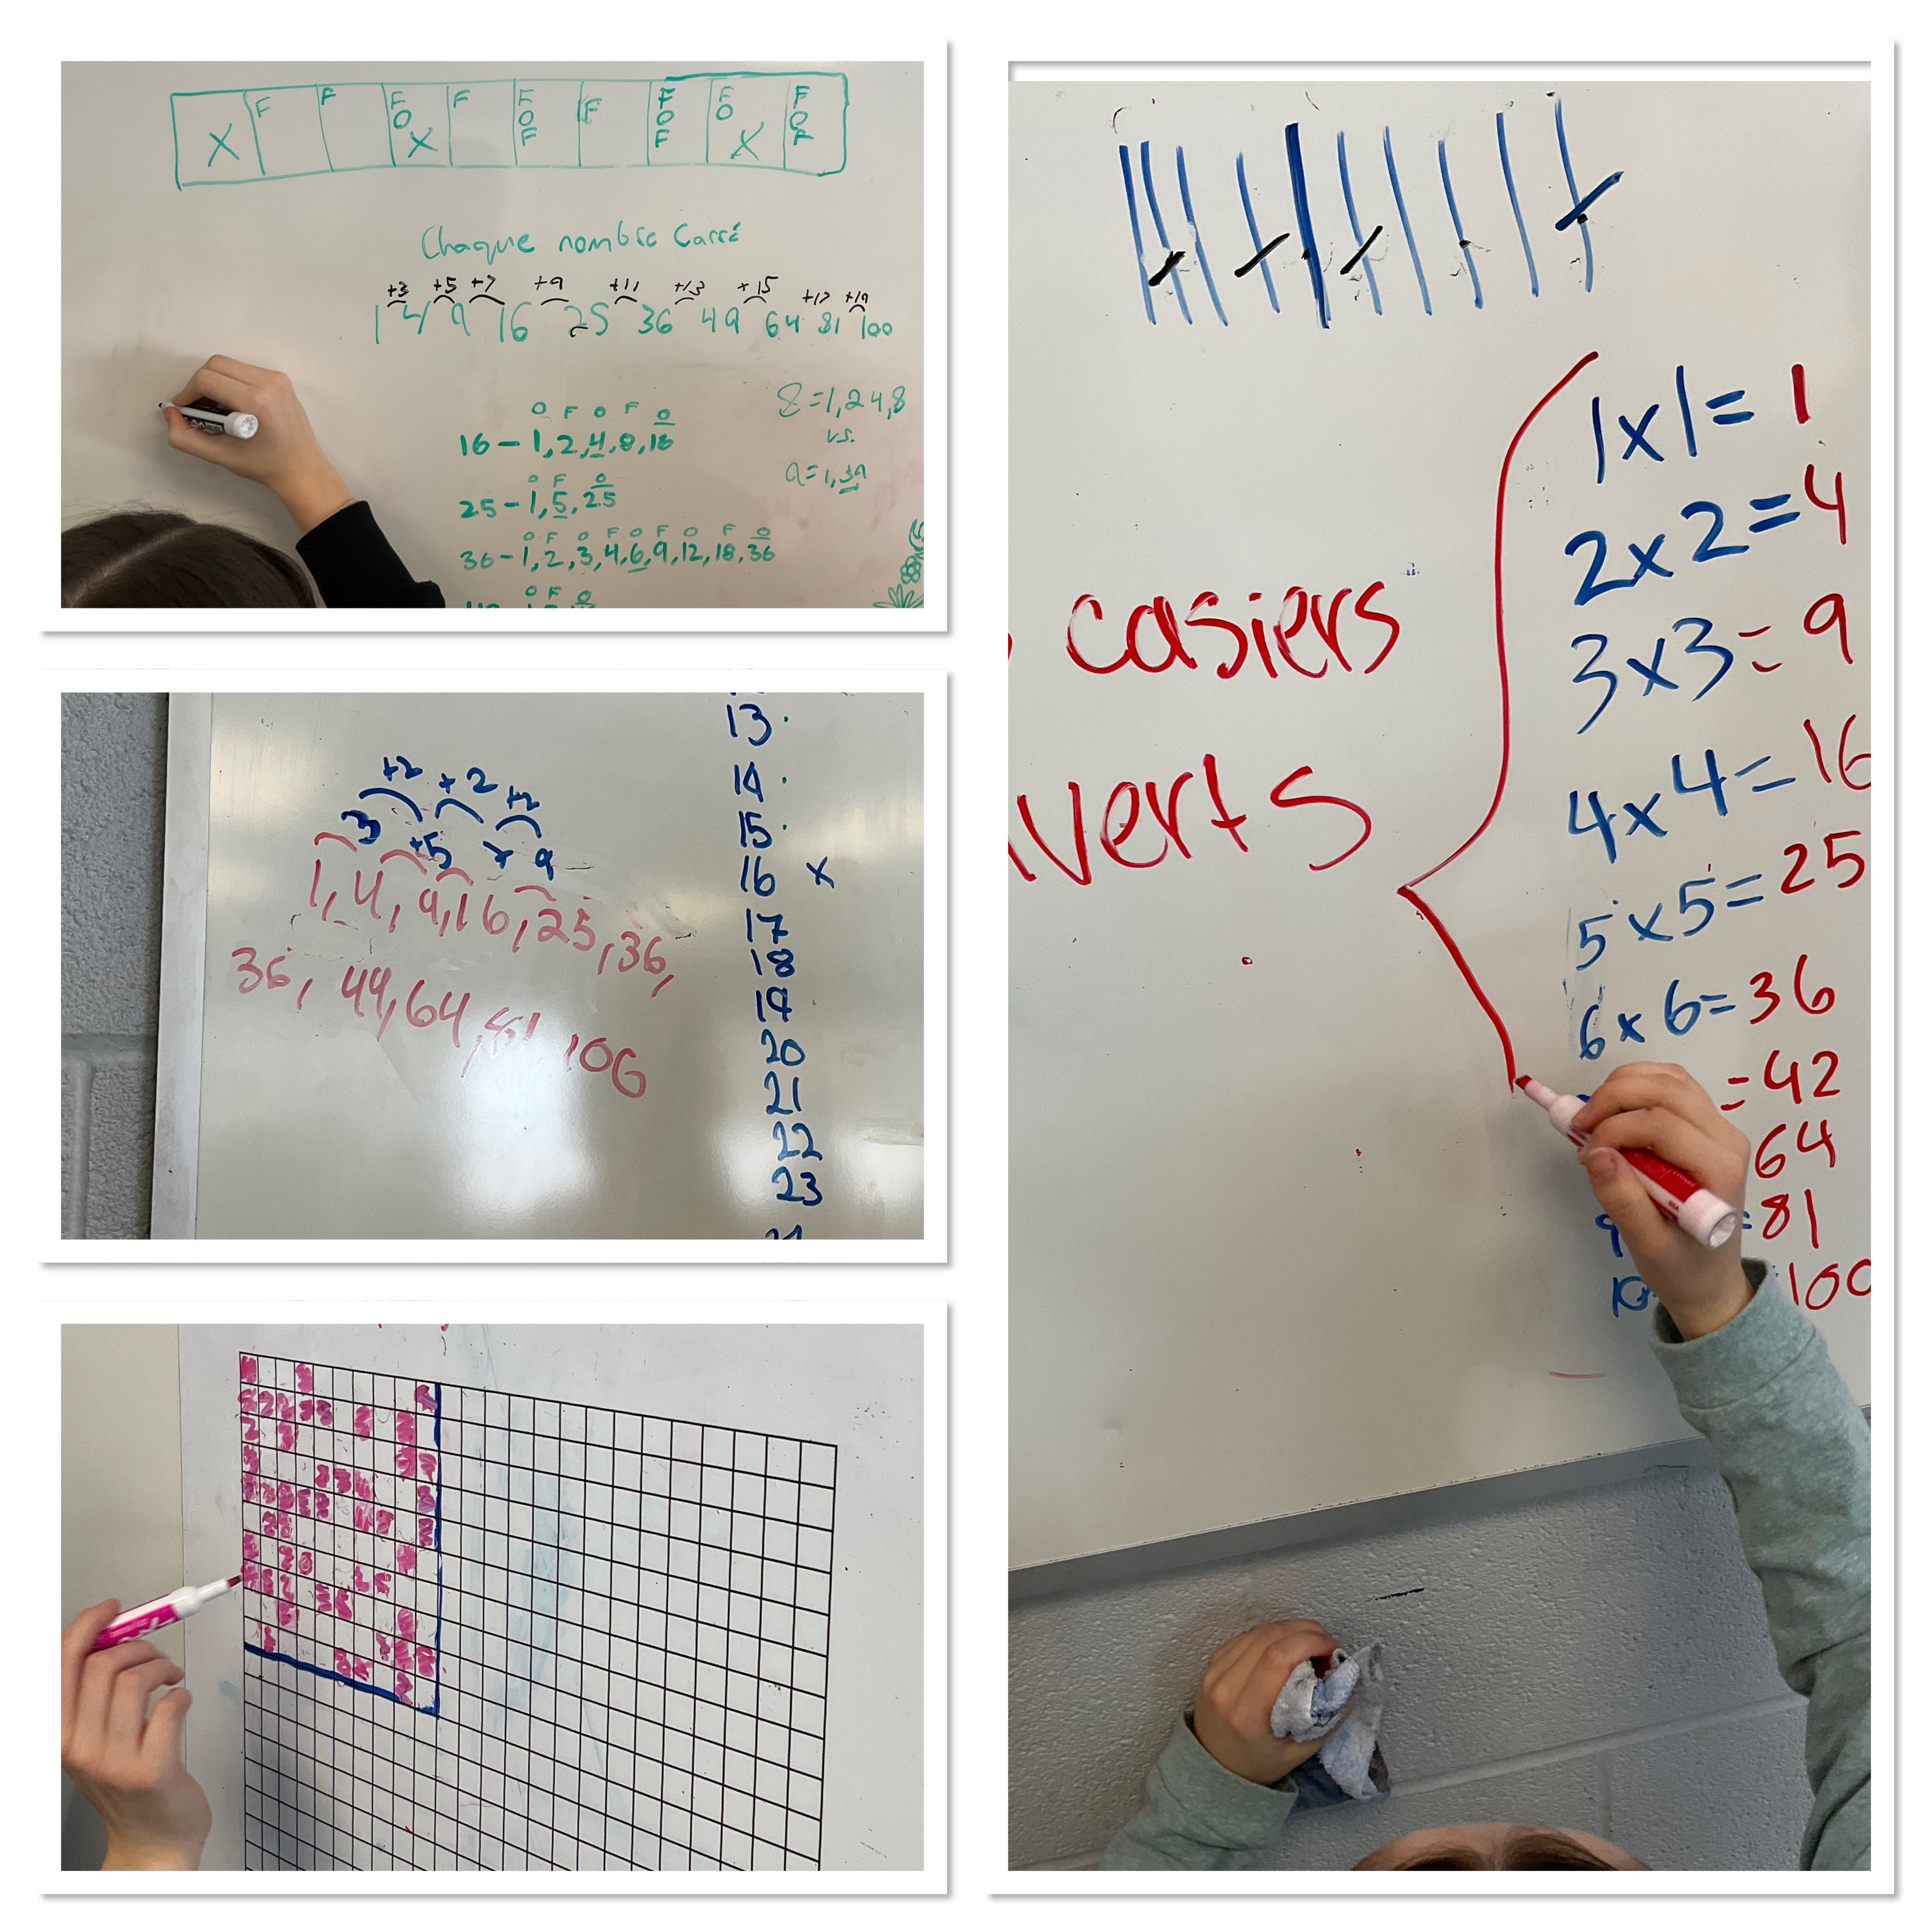 F F F F F F F F F
O O O O O
F F F
X X X
Chaque nombre Carré
+3 +5 +7 +9 +11 +13 +15 +17 +19
1 4 9 16 25 36 49 64 81 100
O F O F O
16 - 1, 2, 4, 8, 16
O F O
25 - 1, 5, 25
O F O F O F O F O
36 - 1, 2, 3, 4, 6, 9, 12, 18, 36
O F O
8 = 1, 2 4, 8
vs.
9 = 1, 3 9
+2 +2 +2
3 +5 + 9
1, 4, 9, 16, 25, 36,
36, 49, 64, 81 100
13
14
15
16 x
17
18
19
20
21
22
23
casiers
verts
1x1= 1
2x2=4
3x3=9
4x4=16
5x5=25
6x6=36
=42
64
=81
10 =100